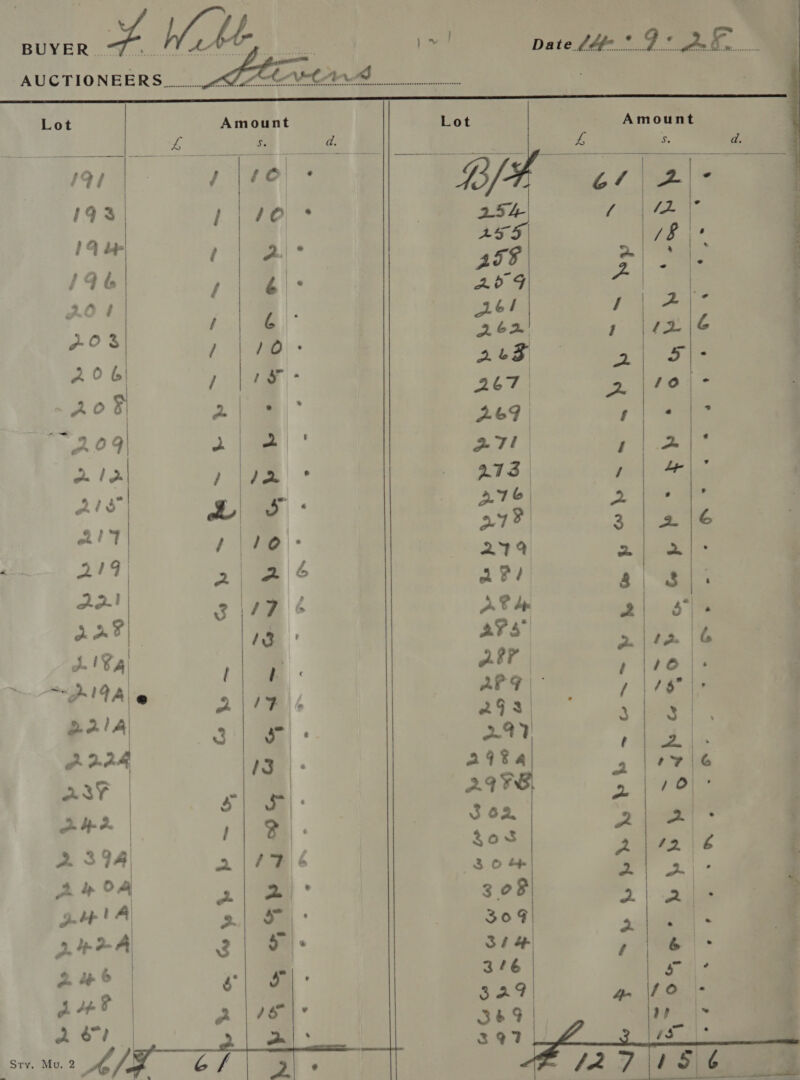 BUYER F. Webb Date 14 • 9 • 28.
AUCTIONEERS Stevens
Lot Amount
£ s. d.
191 1 10 •
193 1 10 •
194 1 2 •
196 1 6 •
201 1 6 •
203 1 10 •
206 1 15 •
208 2 • •
209 2 2 •
212 1 12 •
215 2 5 •
217 1 10 •
219 2 2 6
221 3 17 6
228 13 •
218A 1 1 •
219A 2 17 6
221A 3 5 •
222A 13 •
238 5 5 •
242 1 8 •
239A 2 17 6
240A 2 2 •
241A 2 5 •
242A 3 5 •
246 5 5 •
248 2 15 •
251 2 2 •
Sty. Mu. 2 C/F 61 2 •
Lot Amount
£ s. d.
B/F 61 2 •
254 1 12 •
255 18 •
258 2 • •
259 2 • •
261 1 2 •
262 1 12 6
263 2 5 •
267 2 10 •
269 1 • •
271 1 2 •
273 1 4 •
276 2 • •
278 3 2 6
279 2 2 •
281 3 3 •
284 2 5 •
285 2 12 6
288 1 10 •
289 1 15 •
293 3 3 •
297 1 2 •
298A 2 17 6
298B 2 10 •
302 2 2 •
303 2 12 6
304 2 2 •
308 2 2 •
309 2 • •
314 1 6 •
316 5 •
329 4 10 •
369 11 •
397 3 15 •
£ 127 15 6